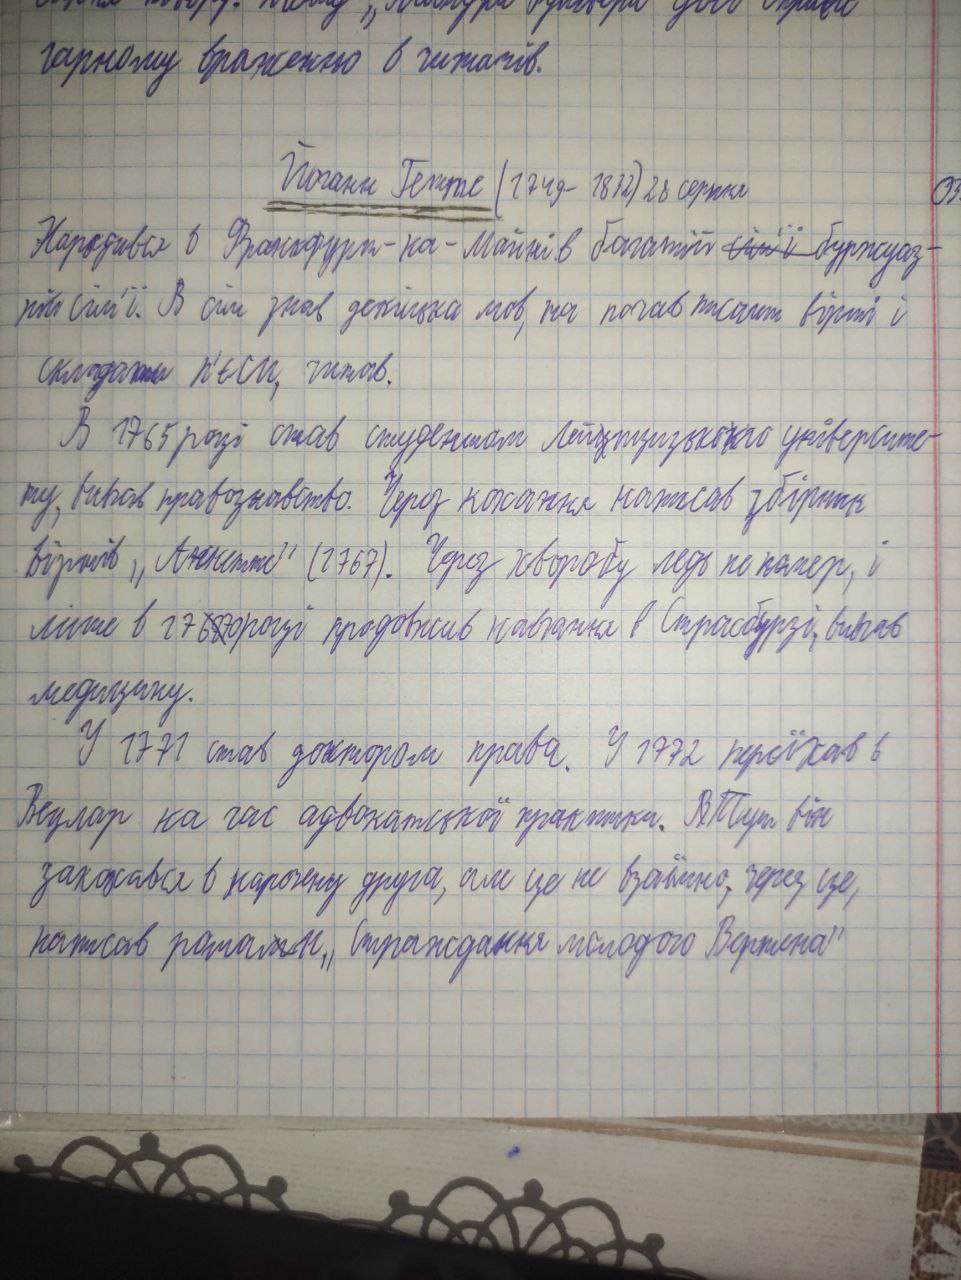 гарному враженню в читачів.
Йоганн Гетте (1749-1832) 28 серпня
03.
Народився в Франкфурті-на-Майні в багатій сім'ї буржуаз-
ній сім'ї. В сім знав декілька мов, та почав писати вірші і
складати п'єси, читав.
В 1765 році став студентом Лейпцизького університе-
ту, вивчав правознавство. Через кохання написав збірник
віршів „Аннетте" (1767). Через хворобу ледь не помер, і
лише в 1770 році продовжив навчання в Страсбурзі, вивчав
медицину.
У 1771 став доктором права. У 1772 переїхав в
Вецлар на час адвокатської практики. Тут він
закохався в наречену друга, але це не взаїмно, через це,
написав роман „Страждання молодого Вертена"